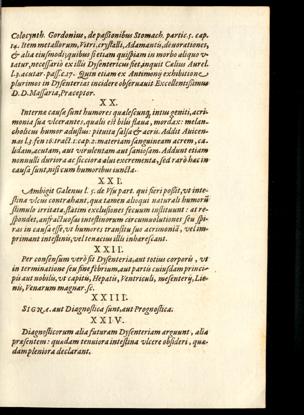 Colocynth. Gordonius, de passionibus Stomach. partic. 5. cap.
14. Item metallorum, Vitri, crystalli, Adamantis, deuorationes,
& alia eiusmodi; quibus si etiam quispiam in morbo aliquo v-
tatur, necessario ex illis Dysentericus fiet, inquit Calius Aurel.
l. 3. acutar. pass. c. 17. Quin etiam ex Antimonij exhibitione
plurimos in Dysenterias incidere obseruauit Excellentissimus
D. D. Massaria, Præceptor.
XX.
Interna causa sunt humores qualescunq; intus geniti, acri-
monia sua vlcerantes, qualis est bilis flaua, mordax: melan-
cholicus humor adustus: pituita salsa & acris. Addit Auicen-
nas l. 3. fen 16. tract. 1. cap. 2. materiam sanguineam acrem, ca-
lidam, acutam, aut virulentam aut saniosam. Addunt etiam
nonnulli duriora ac sicciora alui excrementa, sed raro hæc in
causa sunt, nisi cum humoribus iuncta.
XXI.
Ambigit Galenus l. 5. de Vsu part. qui fieri possit, vt inte-
stina vlceri contrahant, qua tamen alioqui naturali humorũ
stimulis irritata, statim exclusiones fecum instituunt: at re-
spondet, anfractuosas intestinorum circumuolutiones seu spi-
ras in causa esse, vt humores transitu suo acrimonia, vel im-
primant intestinis, vel tenacius illis inhærescant.
XXII.
Per consensum verò fit Dysenteria, aut totius corporis, vt
in terminatione seu fine febrium, aut partis cuiusdam princi-
pis aut nobilis, vt capitis, Hepatis, Ventriculi, mesenterij, Lie-
nis, Venarum magnar. &c.
XXIII.
SIGNA, aut Diagnostica sunt, aut Prognostica.
XXIV.
Diagnosticorum alia futuram Dysenteriam arguunt, alia
præsentem: quædam tenuiora intestina vlcere obsideri, quæ-
dam pleniora declarant.